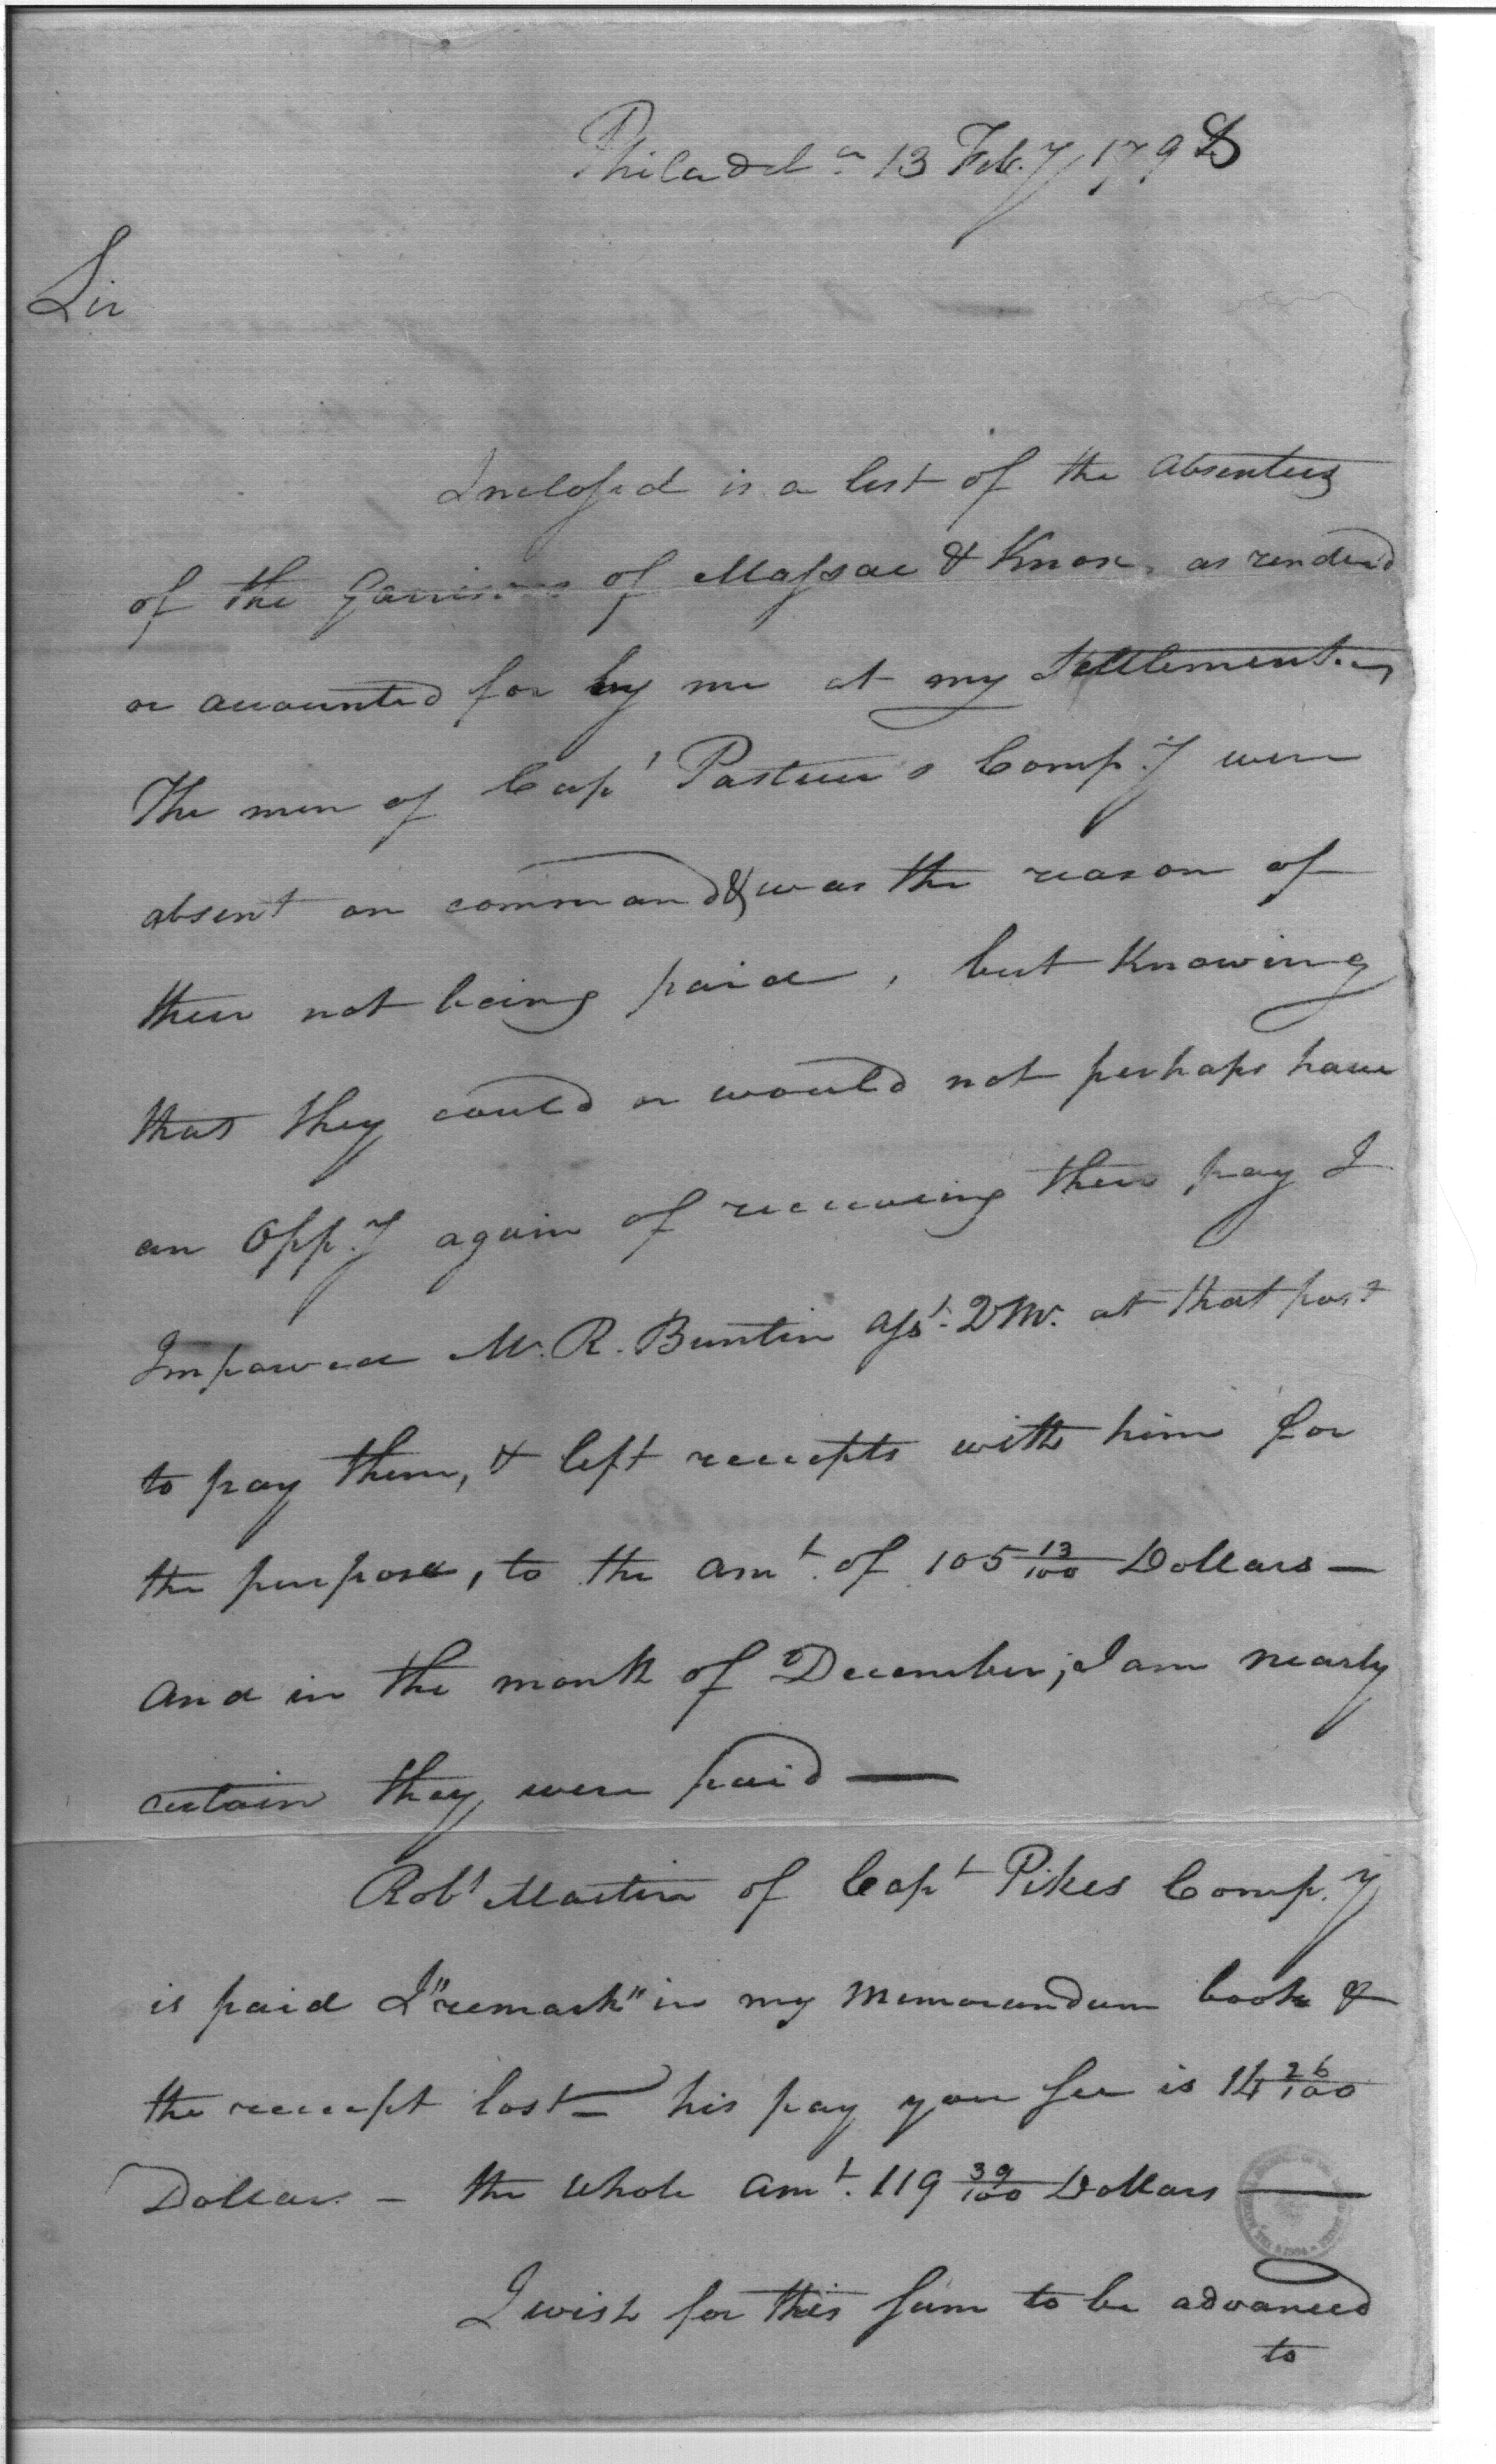 Philadel.a 13 Feb.y 1798
Sir
Inclosed is a list of the absentees
of the Garrisons of Massac & Knox, as renderd
or accounted for by me at my Settlement.
The men of Capt Pasteur's Comp.y were
absent on command & was the reason of
their not being paid, but Knowing
that they could or would not perhaps have
an Opp.y again of receiving their pay I
Impowered Mr. R. Buntin asst. QM. at that post
to pay them, & left receipts with him for
the purpose, to the amt. of 105 13/100 Dollars —
and in the month of December; I am nearly
certain they were paid —
Robt Martin of Capt Pikes Comp.y
is paid I "remark" in my Memorandum book &
the receipt lost — his pay you see is 14 26/100
Dollars — the whole amt. 119 39/100 Dollars —
I wish for this sum to be advanced
to